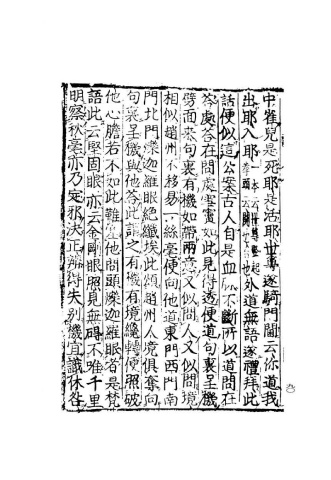 中雀兒是死耶是活耶世尊遂騎門閫云你道我
出耶入耶一本云世尊豎起拳頭云開也合也外道無語遂禮拜此
話便似這公案古人自是血脉不斷所以道問在
荅處荅在問處雪竇如此見得透便道句裏呈機
劈面來句裏有機如帶兩意又似問人又似問境
相似趙州不移易一絲毫便向他道東門西門南
門北門爍迦羅眼絕纖埃此頌趙州人境俱奪向
句裏呈機與他荅此謂之有機有境纔轉便照破
他心膽若不如此難塞他問頭爍迦羅眼者是梵
語此云堅固眼亦云金剛眼照見無碍不唯千里
明察秋毫亦乃定邪決正辨得失別機宜識休咎